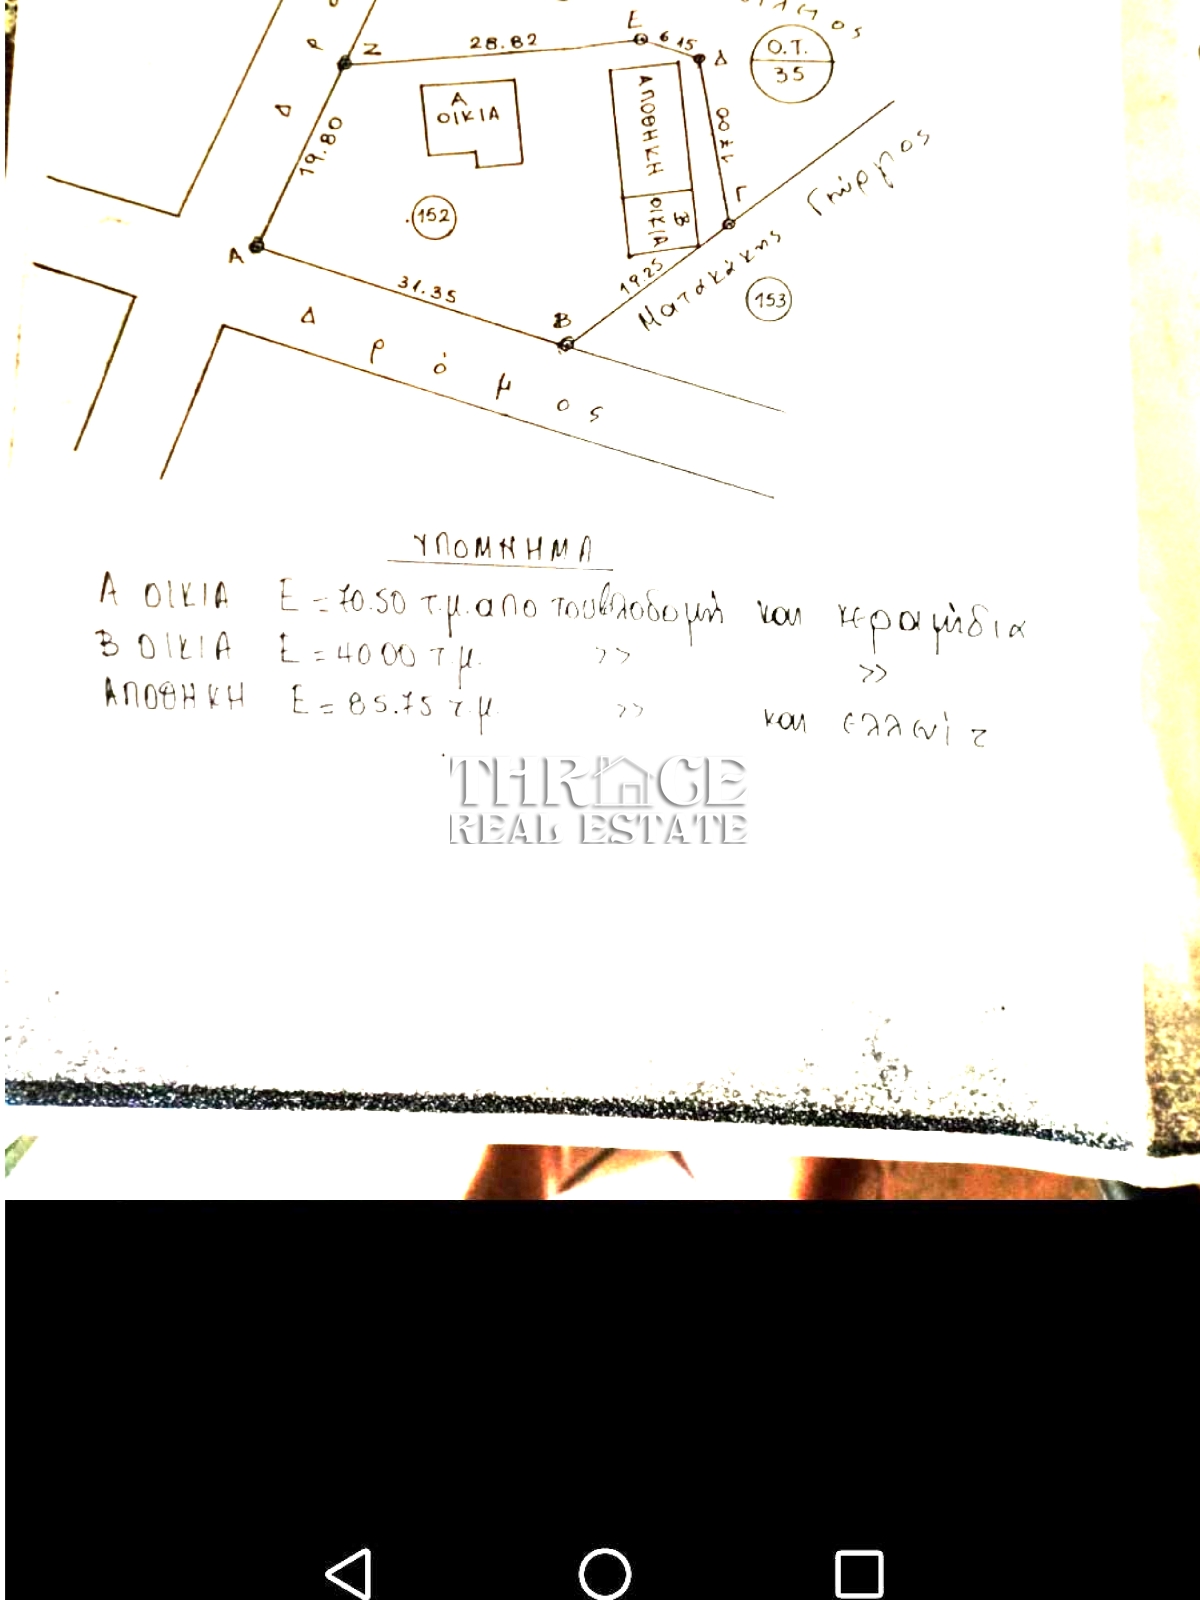 Ε
Ζ
28.82
6 15
Δ
Ο.Τ.
35
Δ
Ρ
Α
ΟΙΚΙΑ
ΑΠΟΘΗΚΗ
17.00
19.80
Γ
152
Β
ΟΙΚΙΑ
Ματακάκης Γιώργος
Α
31.35
19.25
153
Β
Δ ρ ό μ ο ς
ΥΠΟΜΝΗΜΑ
Α ΟΙΚΙΑ Ε = 70.50 τ.μ. απο τουβλοδομή και κεραμίδια
Β ΟΙΚΙΑ Ε = 40 00 τ.μ. >> >>
ΑΠΟΘΗΚΗ Ε = 85.75 τ.μ. >> και ελλενίτ
THRACE
REAL ESTATE